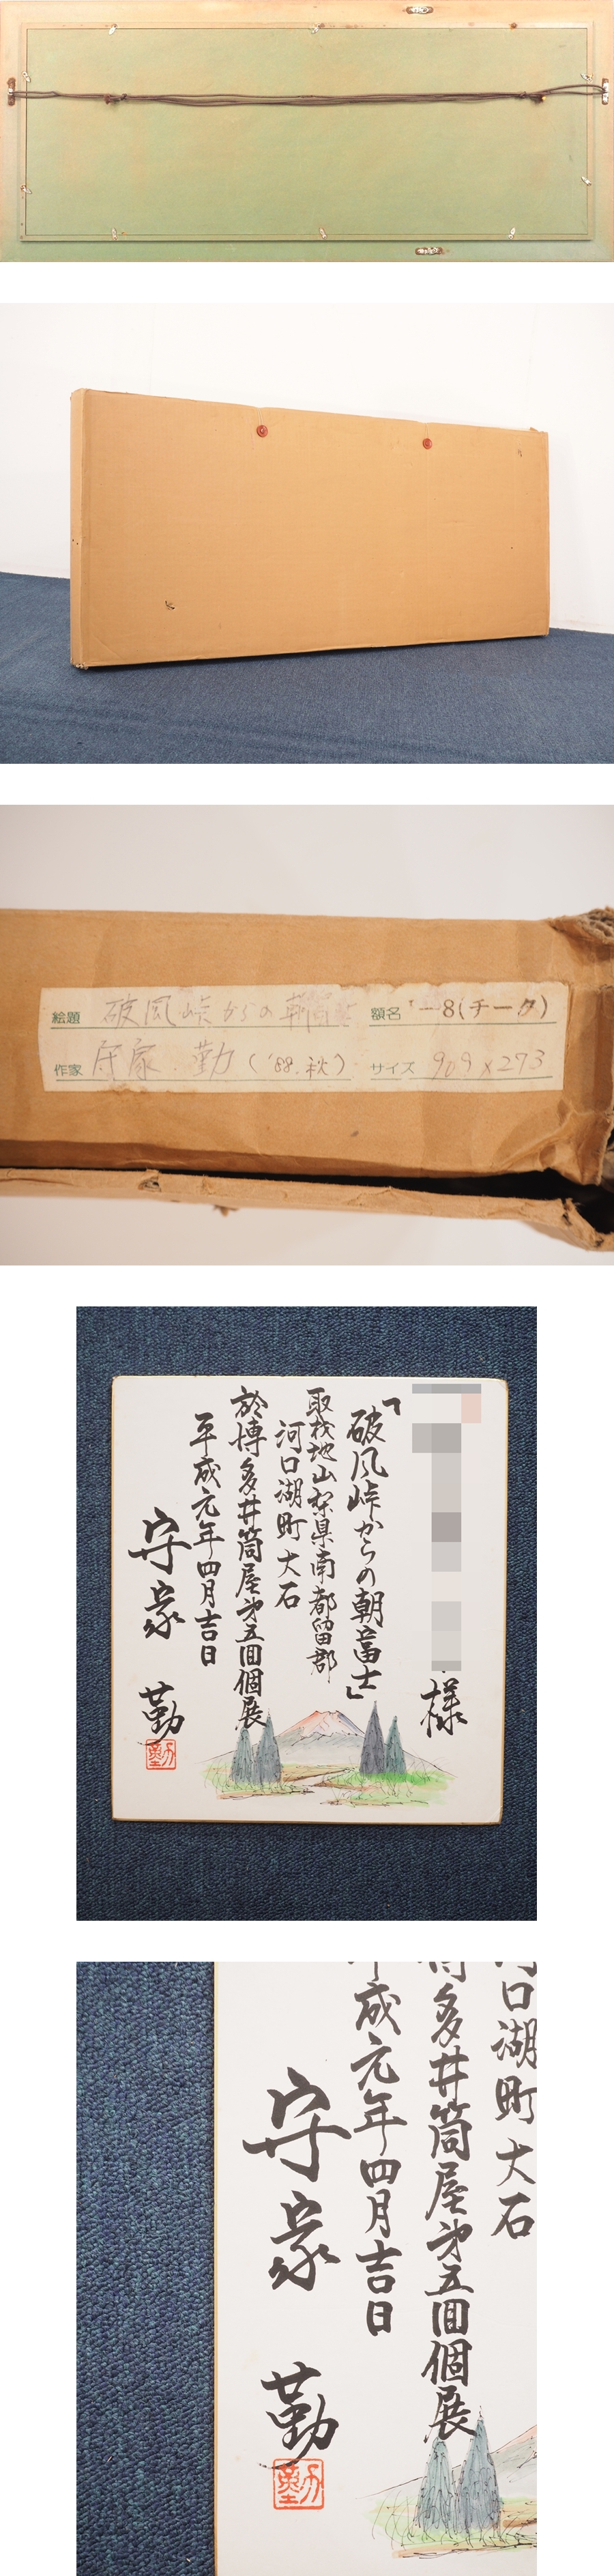 絵題 破風峠からの朝富士
額名 T-8(チーク)
作家 守家 勤 ('88.秋)
サイズ 909×273
様
「破風峠からの朝富士」
取材地山梨県南都留郡
河口湖町大石
於博多井筒屋第五回個展
平成元年四月吉日
守家 勤
勤
河口湖町大石
博多井筒屋第五回個展
平成元年四月吉日
守家 勤
勤